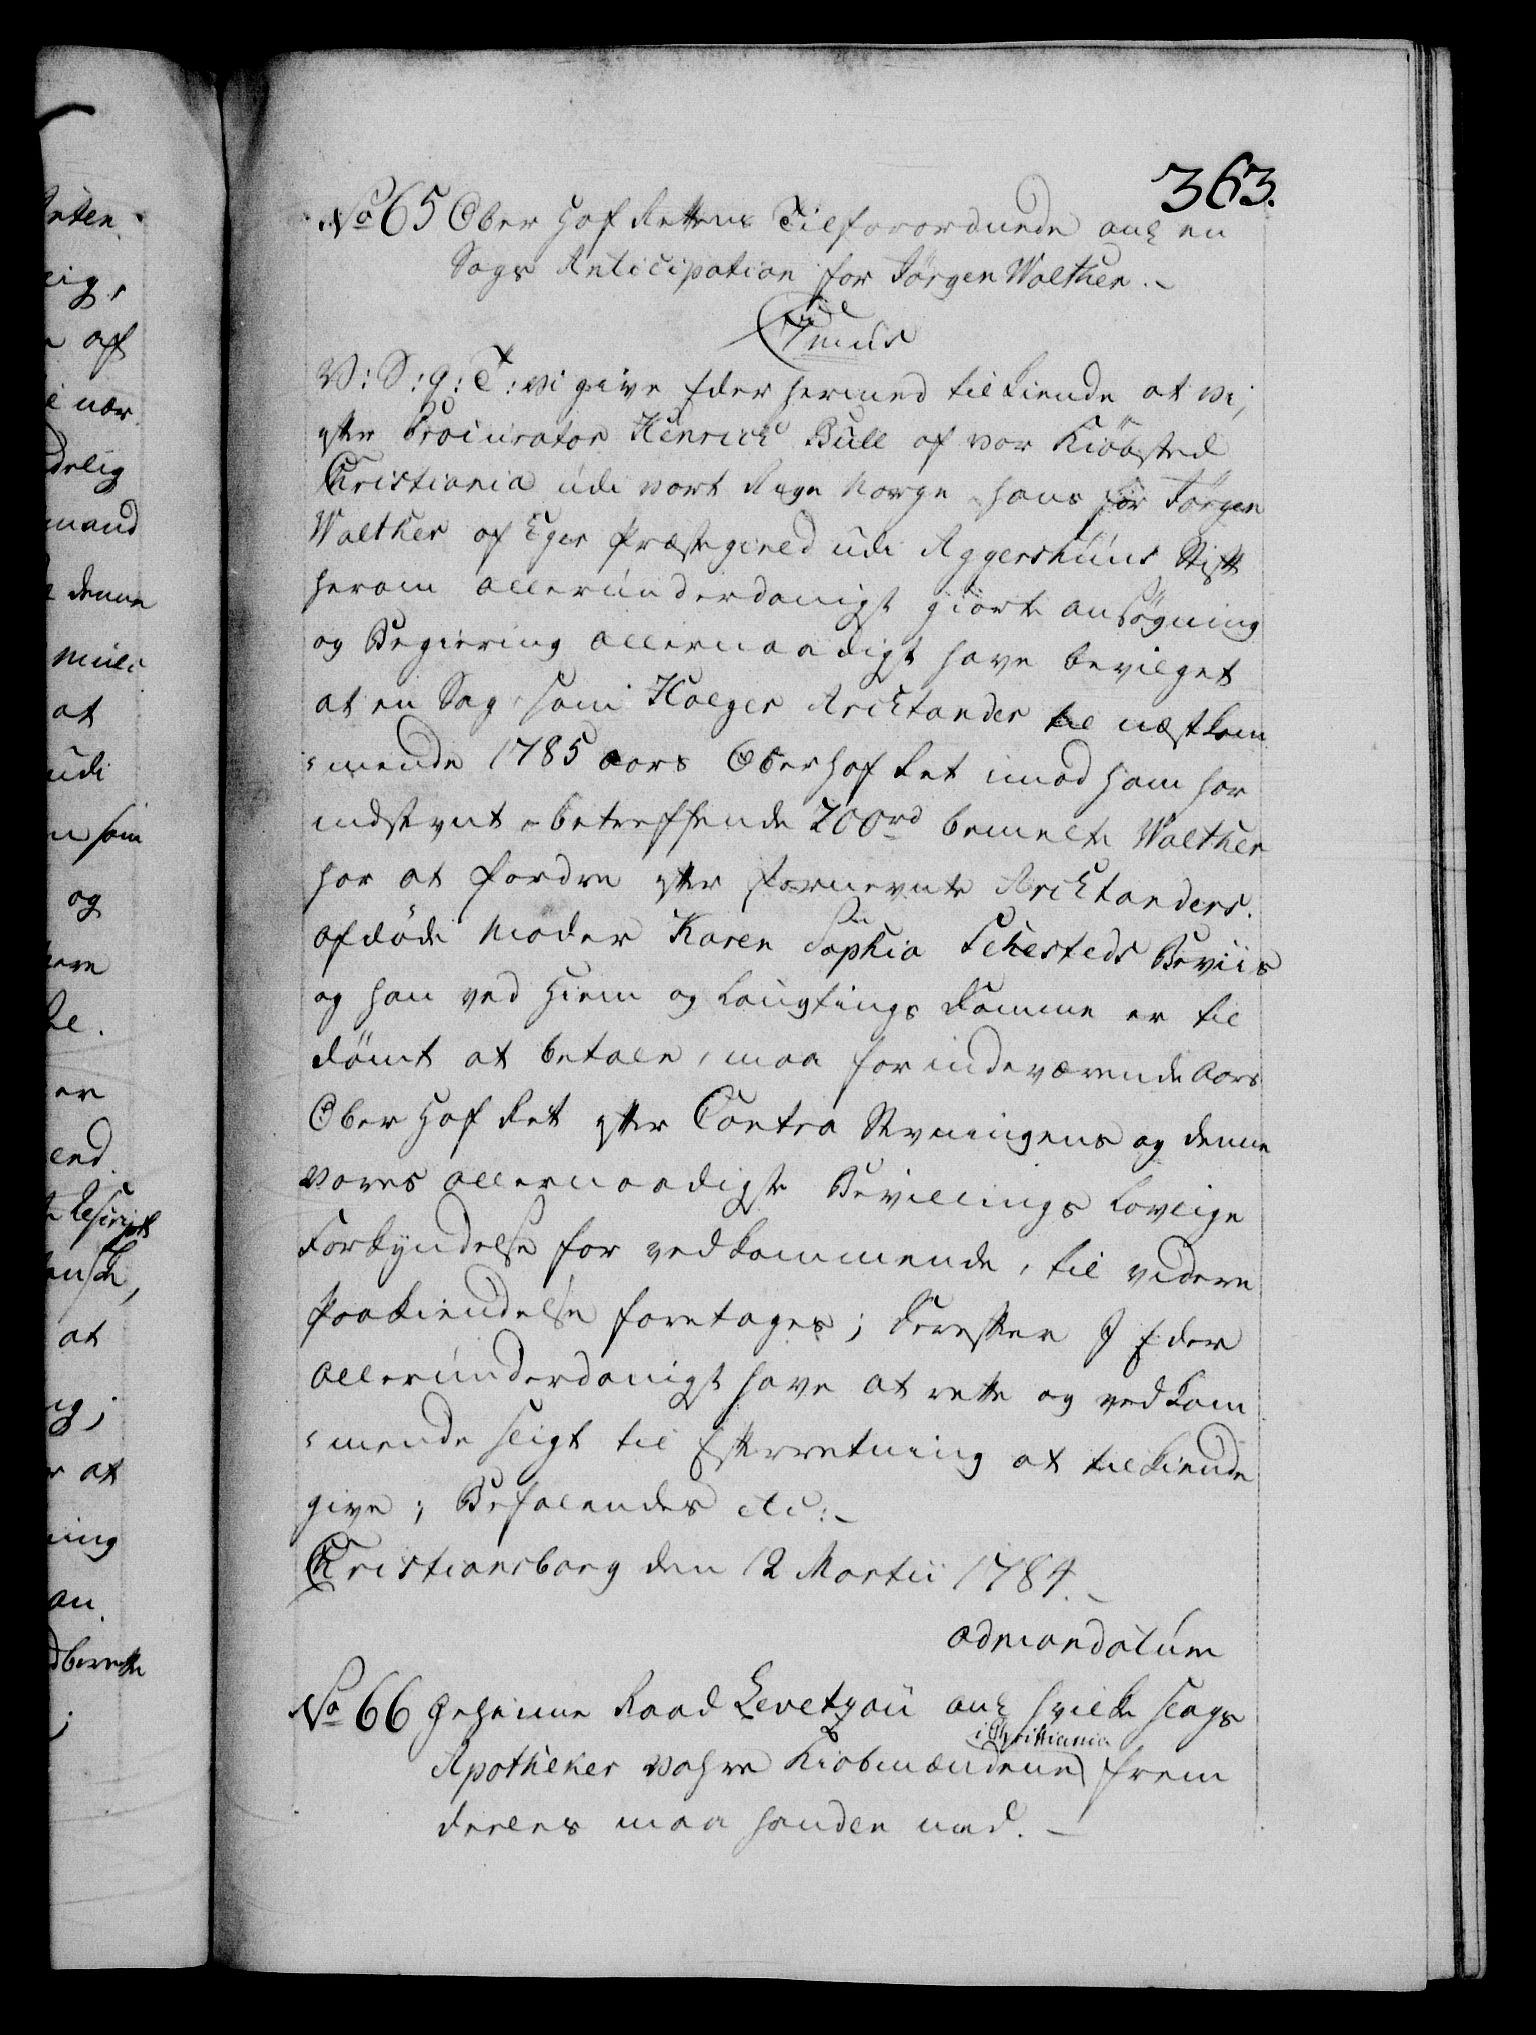 363.
No 65 Ober Hof Rettens Tilforordnede anl en
Sags Anticipation for Jörgen Walther.
V: S: G: T: vi give Eder hermed tilkiende at vi,
efter Procurator Henrich Bull af vor Kiöbsted
Christiania udi vort Rige Norge hans for Jörgen
Walther af Eger Præstegield udi Aggershuus Stift
herom allerunderdanigst giorte ansögning
og Begiering allernaadigst have bevilget
at en Sag som Holger Arctander til næstkom
mende 1785 aars Oberhof Ret imod ham har
indstevnt betreffende 200rd bemelte Walther
har at fordre efter fornevnte Arctanders
afdöde Moder Karen Sophia Sehesteds Beviis
og han ved Hiem og Laugtings Domme er til
dömt at betale, maa for indeværende Aars
Ober Hof Ret efter Contra Stevningens og denne
vores allernaadigste Bevillings lovlige
Forkyndelse for vedkommende, til videre
Paakiendelse foretages; Derefter I Eder
allerunderdanigst have at rette og vedkom
mende sligt til Efterretning at tilkiende
give; Befalendes etc:
Christiansborg den 12 Martii 1784.
admandatum
No 66 Geheime Raad Levetzau anl hvilke slags
Apotheker vahre Kiöbmændene i Christiania frem
deeles maa handle med.
anten.
af
denne
at
udi
som
og
er
Rescript
at
at
ning